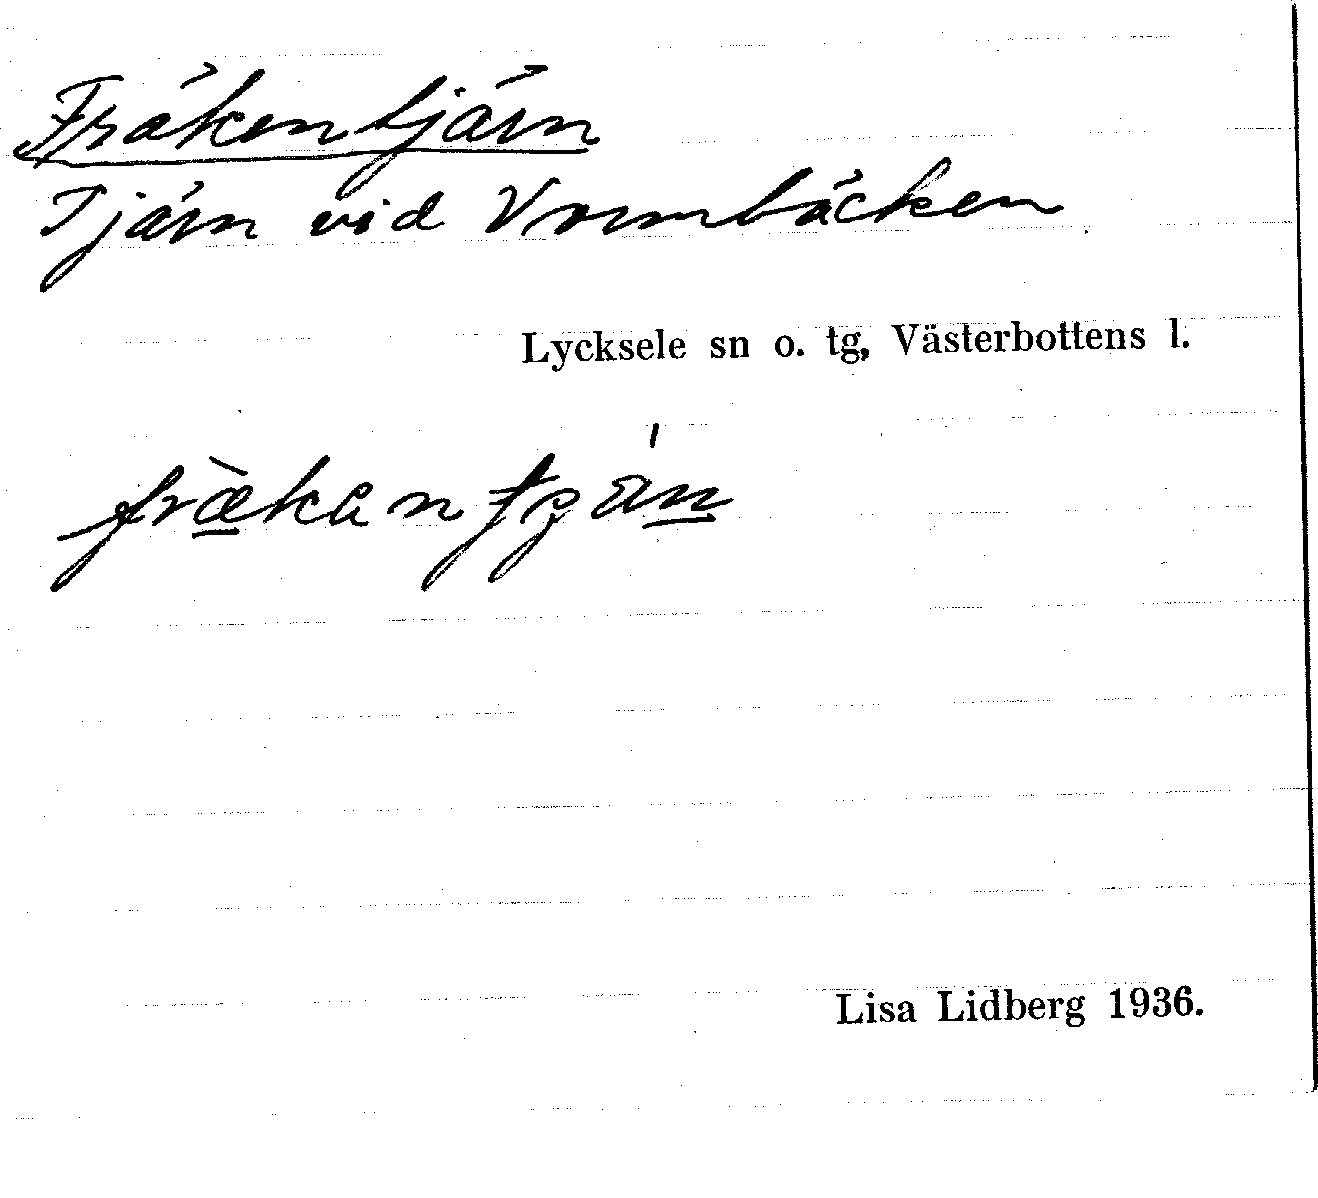 Fräkentjärn
Tjärn vid Vormbäcken
Lycksele sn o. tg, Västerbottens l.
Lisa Lidberg 1936.